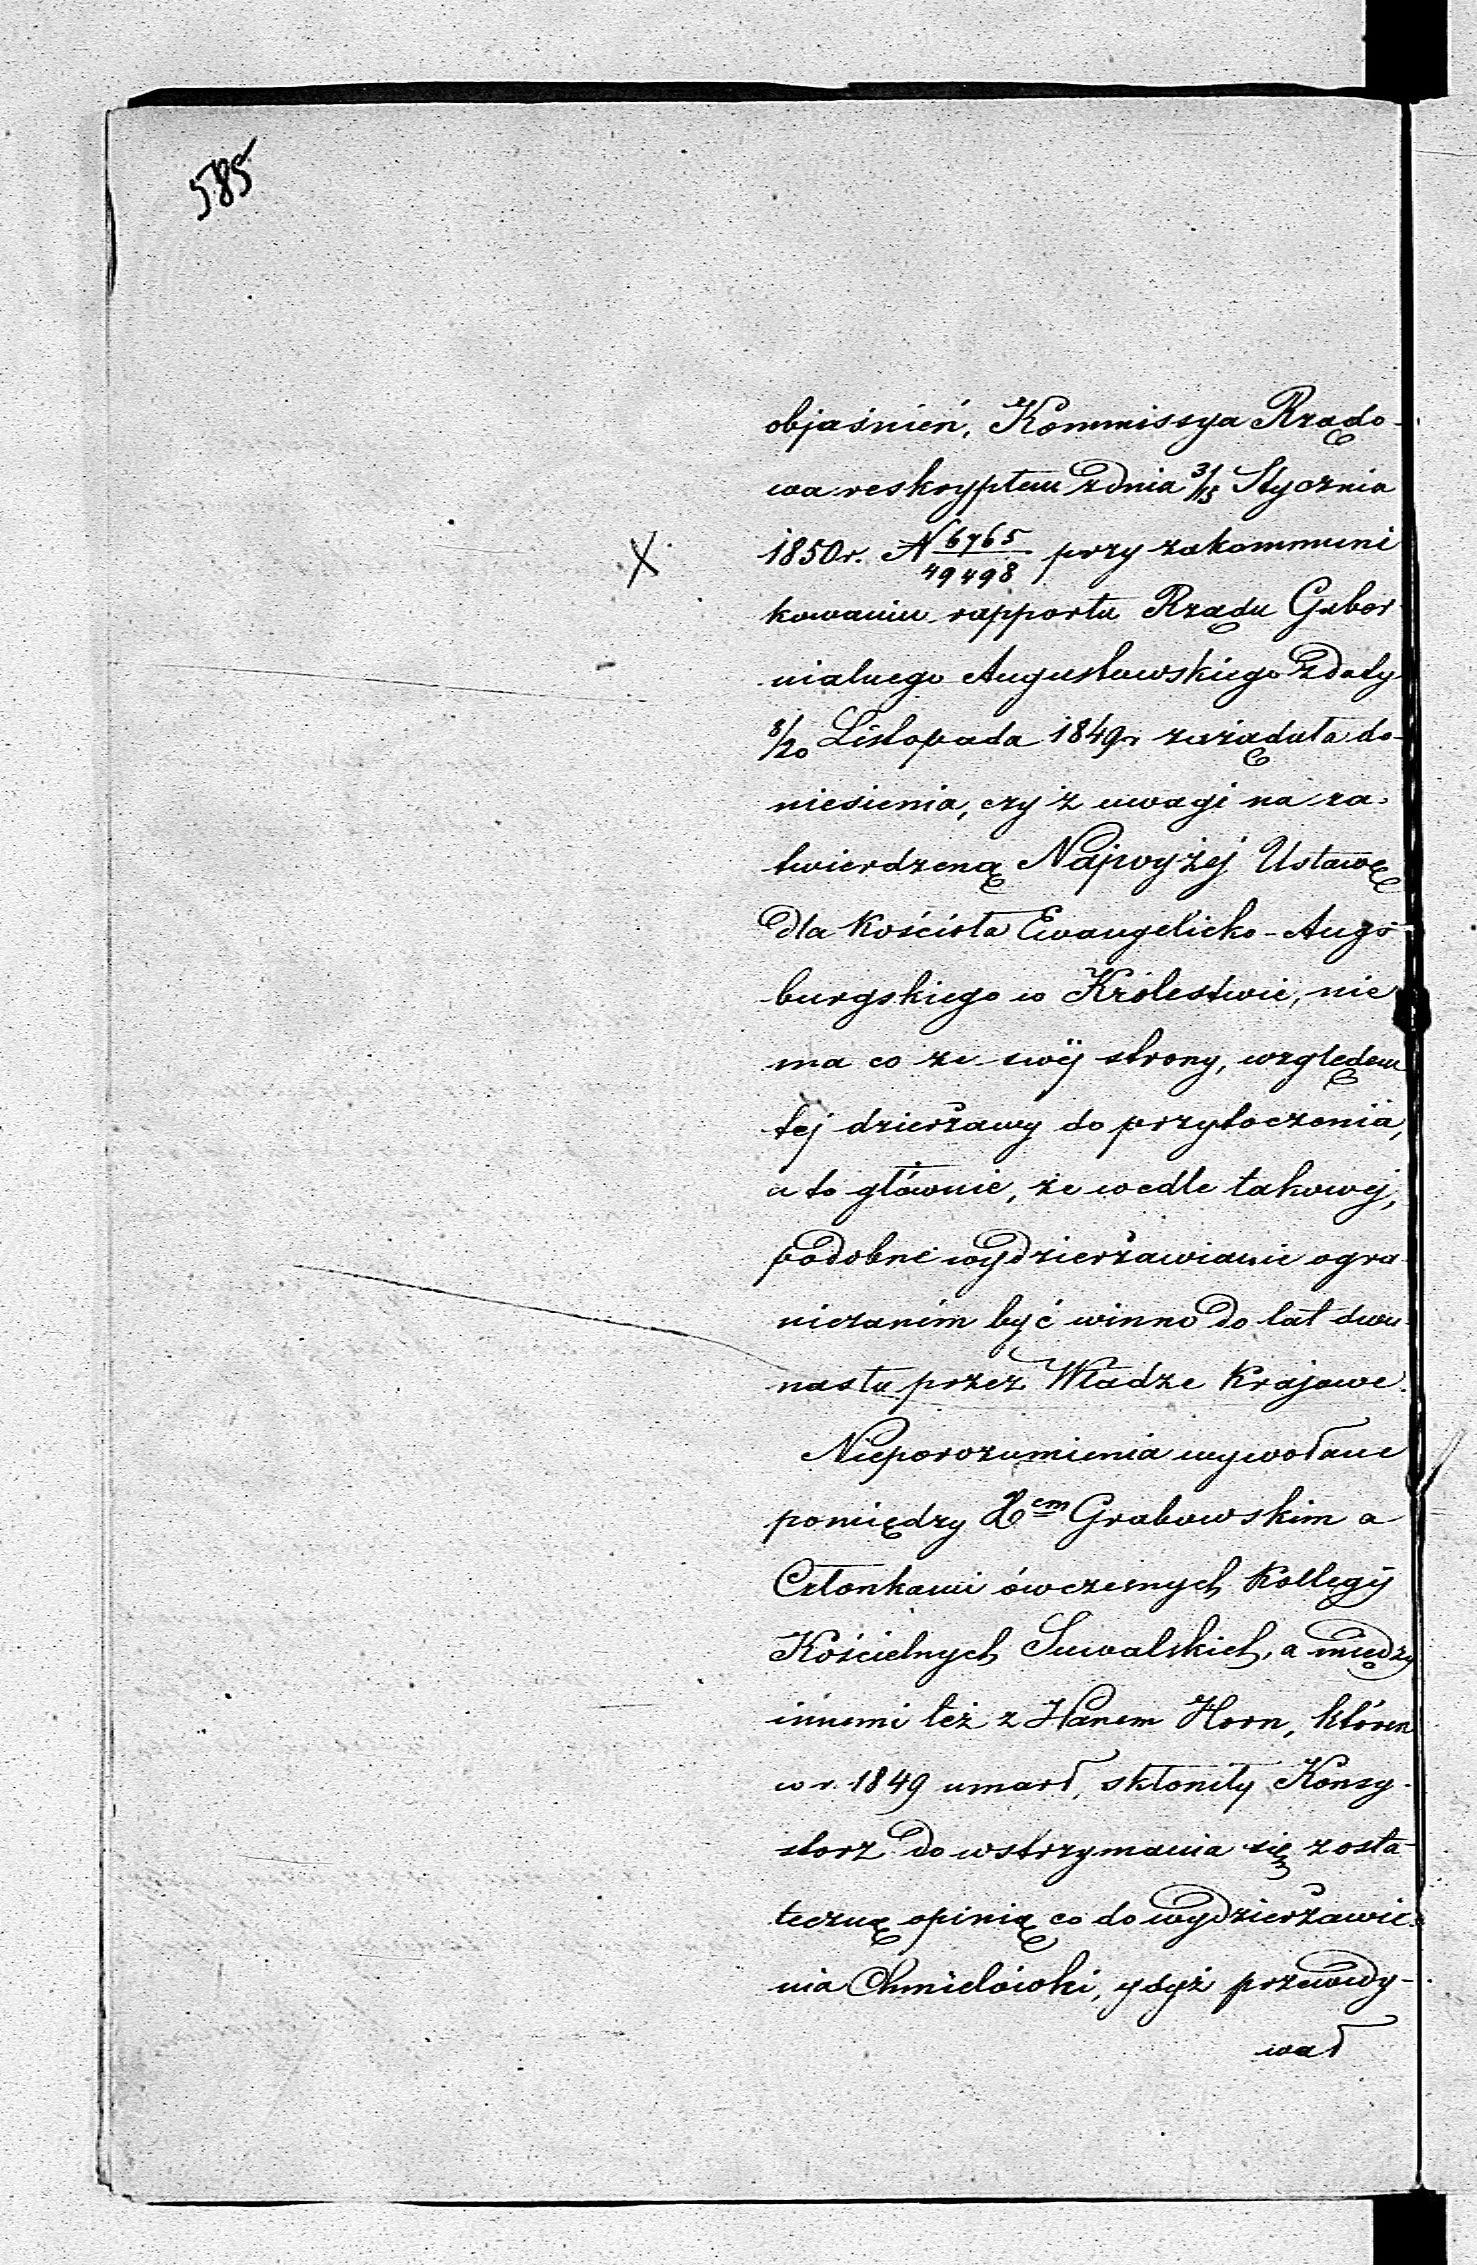 585
objaśnień, Kommissya Rządo-
wa reskryptem z dnia 3/15 Stycznia
X
1850 r. N 6765/49498 przy zakommuni
kowaniu rapportu Rządu Guber-
nialnego Augustowskiego z daty
8/20 Listopada 1849 r. zażądała do-
niesienia, czy z uwagi na za-
twierdzoną Najwyżej Ustawę
dla Kościoła Ewangelicko-Augs-
burgskiego w Królestwie, nie
ma co ze swéj strony, względem
tej dzierżawy do przytoczenia,
a to głównie, że wedle takowej,
podobne wydzierżawianie ogra-
niczaném być winno do lat dwu-
nastu przez Władze Krajowe.
Nieporozumienia wywołane
pomiędzy Xem Grabowskim a
Członkami ówczesnych Kollegij
Kościelnych Suwalskich, a między
innemi też z Panem Horn, któren
w r. 1849 umarł, skłoniły Konsy-
storz do wstrzymania się z osta-
teczną opinią co do wydzierżawie-
nia Chmielówki, gdyż przewidy-
wał